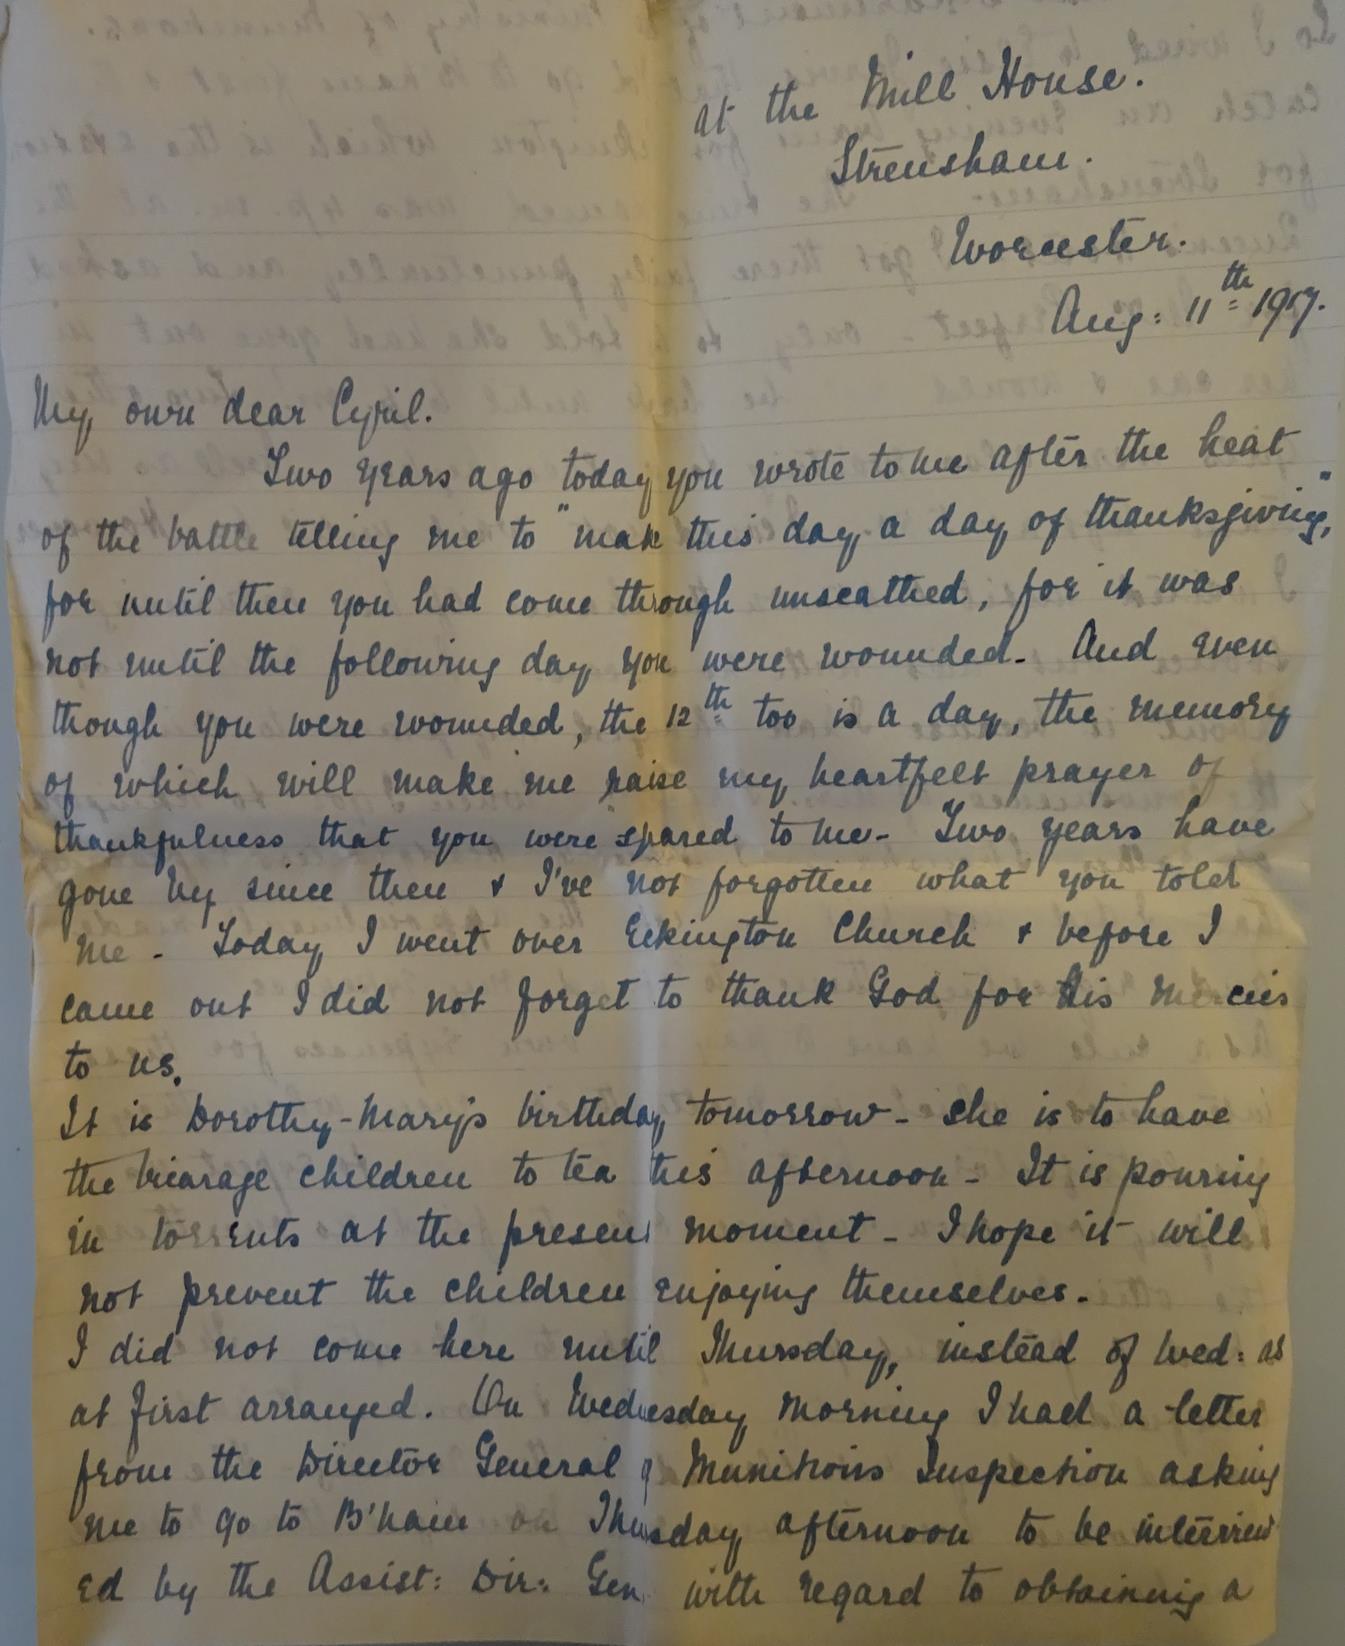 at the Mill House.
Strensham.
Worcester.
Aug: 11th 1917.
My own dear Cyril.
Two years ago today you wrote to me after the heat
of the battle telling me to "make this day a day of thanksgiving",
for until then you had come through unscathed, for it was
not until the following day you were wounded. And even
though you were wounded, the 12th too is a day, the memory
of which will make me raise my heartfelt prayer of
thankfulness that you were spared to me - Two years have
gone by since then & I've not forgotten what you told
me - Today I went over Eckington Church & before I
came out I did not forget to thank God for His mercies
to us.
It is Dorothy-Mary's birthday tomorrow - she is to have
the vicarage children to tea this afternoon - It is pouring
in torrents at the present moment - I hope it will
not prevent the children enjoying themselves.
I did not come here until Thursday, instead of Wed: as
at first arranged. On Wednesday morning I had a letter
from the Director General of Munitions Inspection asking
me to go to B'ham on Thursday afternoon to be interview
ed by the Assist: Dir: Gen with regard to obtaining a